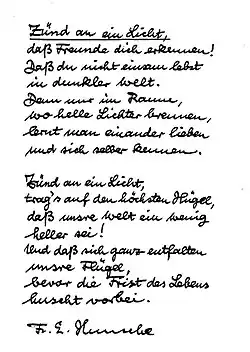 Zünd an ein Licht,
daß Freunde dich erkennen!
Daß du nicht einsam lebst
in dunkler Welt.
Denn nur im Raume,
wo helle Lichter brennen,
lernt man einander lieben
und sich selber kennen.

Zünd an ein Licht,
trag's auf den höchsten Hügel,
daß unsre Welt ein wenig
heller sei!
Und daß sich ganz entfalten
unsre Flügel,
bevor die Frist des Lebens
huscht vorbei.

Fr. E. Hunsche